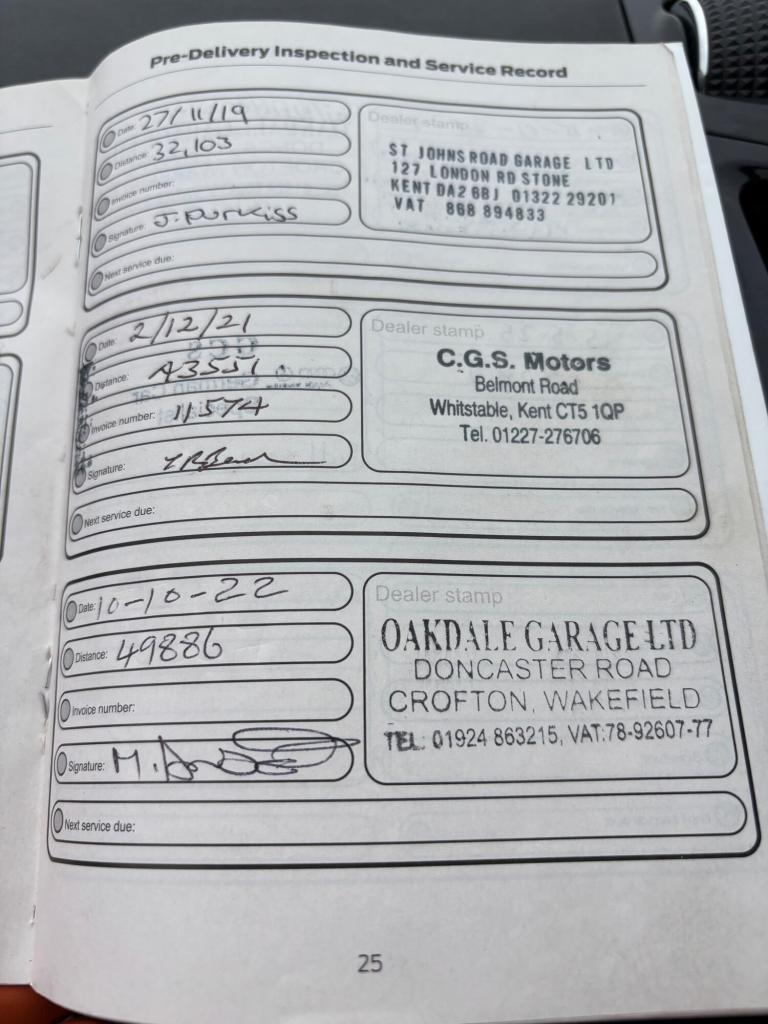 Pre-Delivery Inspection and Service Record
Date: 27/11/19
Distance: 32,103
Invoice number:
Signature: J. Purkiss
Next service due:
Dealer stamp
ST JOHNS ROAD GARAGE LTD
127 LONDON RD STONE
KENT DA2 6BJ 01322 29201
VAT 868 894833
Date: 2/12/21
Distance:
Invoice number: 11574
Signature:
Next service due:
Dealer stamp
C.G.S. Motors
Belmont Road
Whitstable, Kent CT5 1QP
Tel. 01227-276706
Date: 10-10-22
Distance: 49886
Invoice number:
Signature: M.
Next service due:
Dealer stamp
OAKDALE GARAGE LTD
DONCASTER ROAD
CROFTON, WAKEFIELD
TEL: 01924 863215, VAT:78-92607-77
25